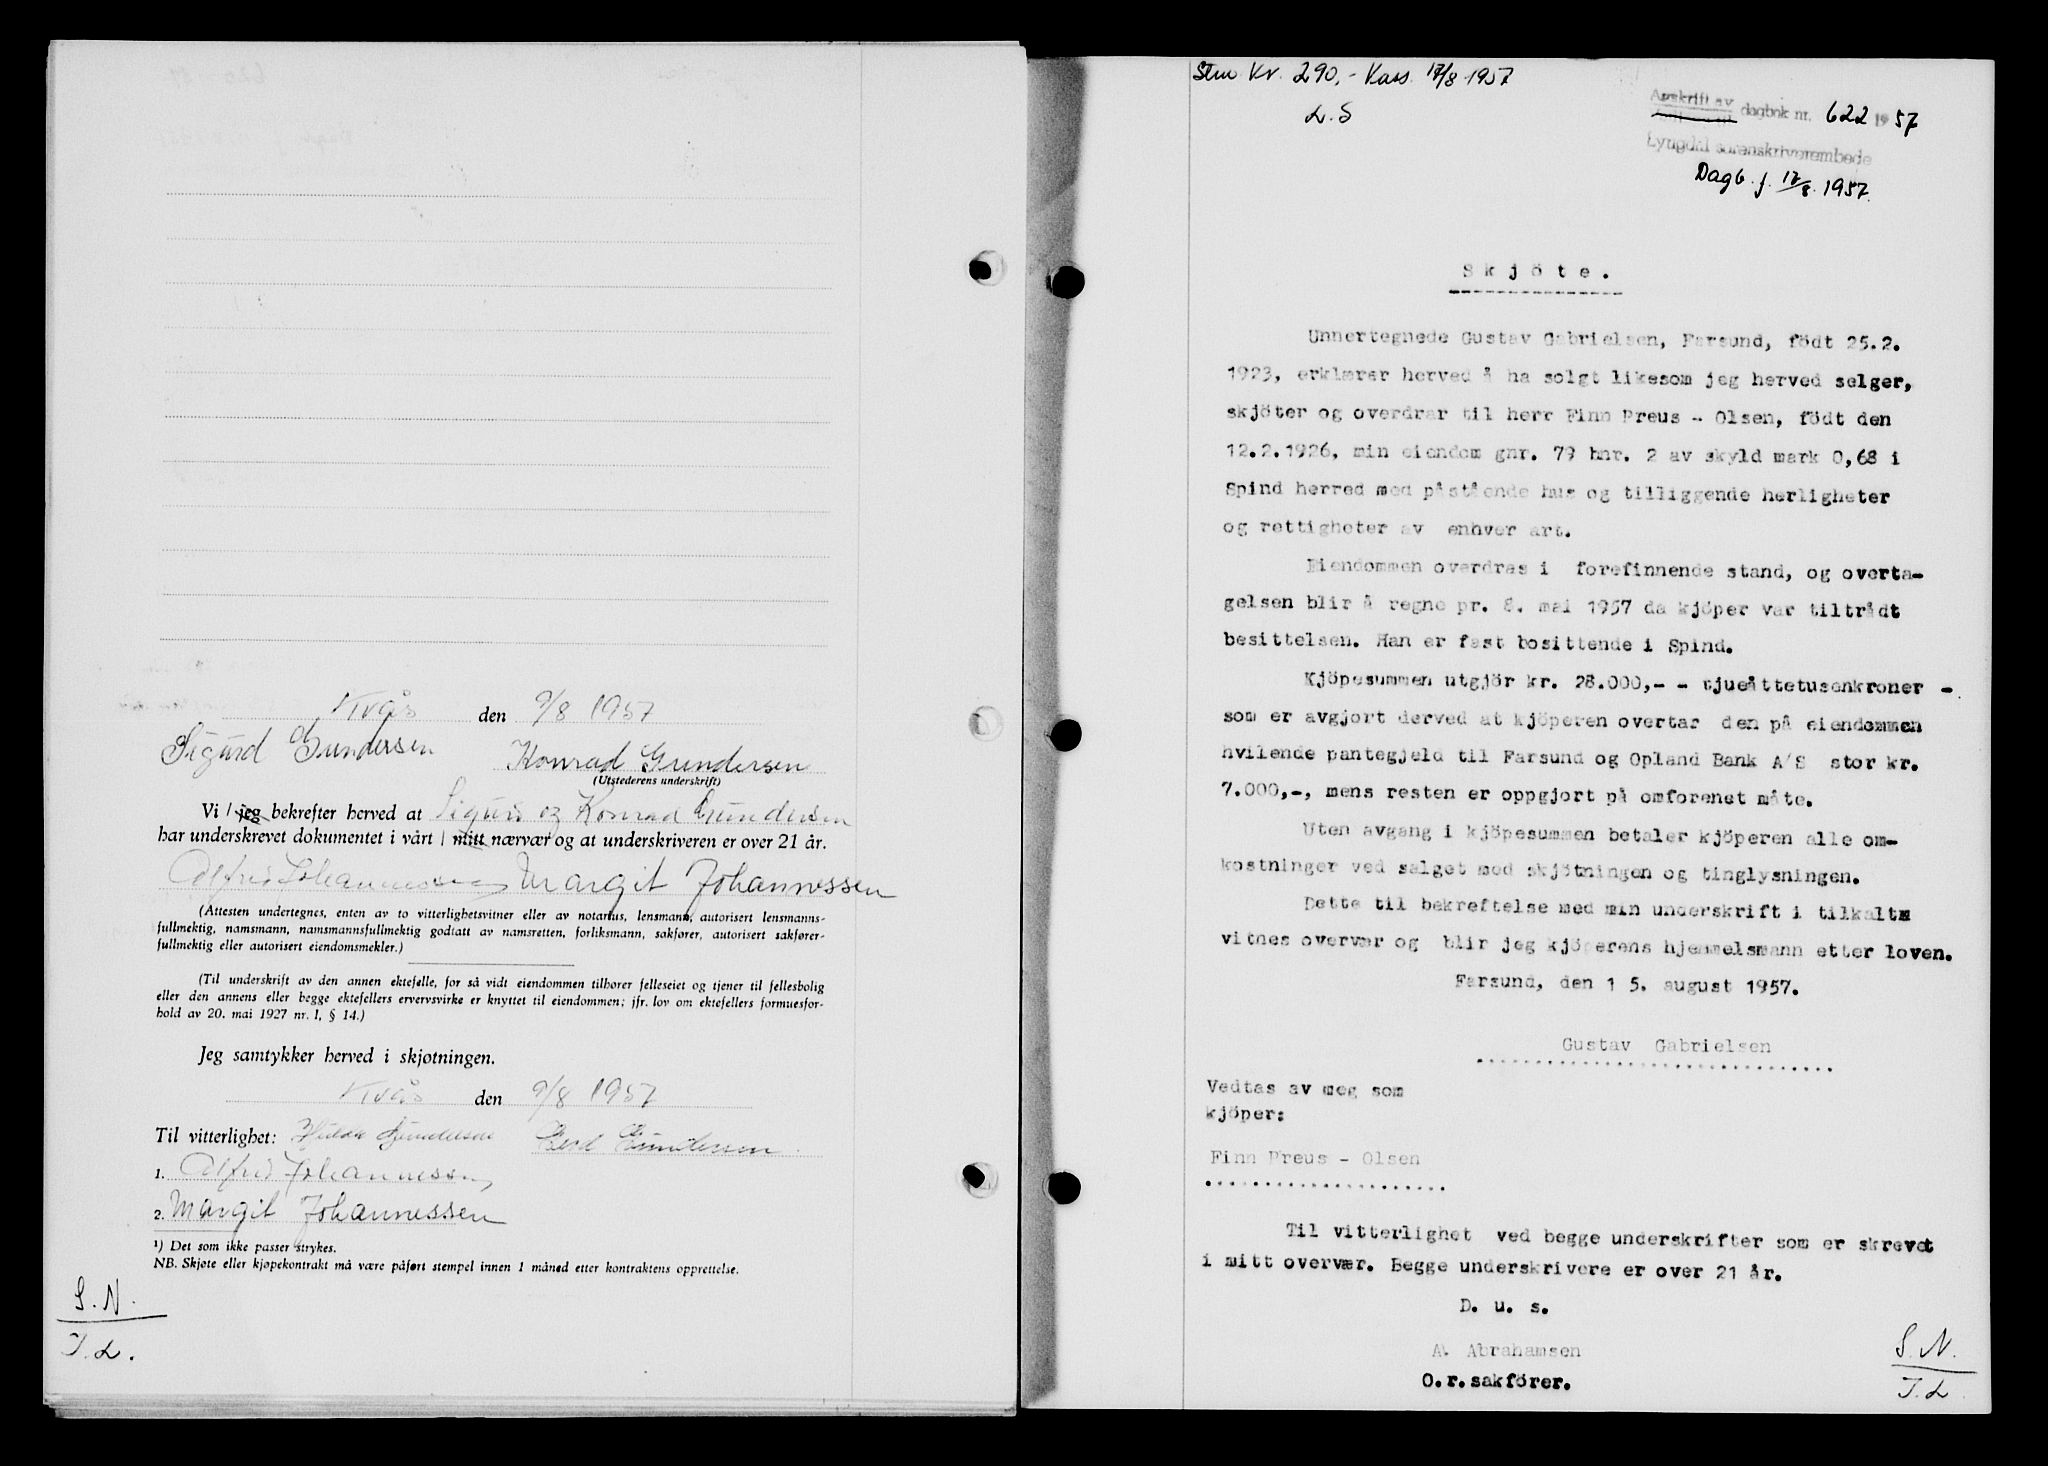 Kvås den 9/8 1957
Sigurd Gundersen Konrad Gundersen
(Utstederens underskrift)
Vi / jeg bekrefter herved at Sigurd og Konrad Gundersen
har underskrevet dokumentet i vårt / mitt nærvær og at underskriveren er over 21 år.
Alfred Johannessen Margit Johannessen
(Attesten undertegnes, enten av to vitterlighetsvitner eller av notarius, lensmann, autorisert lensmanns-
fullmektig, namsmann, namsmannsfullmektig godtatt av namsretten, forliksmann, sakfører, autorisert sakfører-
fullmektig eller autorisert eiendomsmekler.)
(Til underskrift av den annen ektefelle, for så vidt eiendommen tilhører felleseiet og tjener til fellesbolig
eller den annens eller begge ektefellers ervervsvirke er knyttet til eiendommen; jfr. lov om ektefellers formuesfor-
hold av 20. mai 1927 nr. 1, § 14.)
Jeg samtykker herved i skjøtningen.
Kvås den 9/8 1957
Til vitterlighet: Hilda Gundersen Gerd Gundersen
1. Alfred Johannessen
2. Margit Johannessen
¹) Det som ikke passer strykes.
NB. Skjøte eller kjøpekontrakt må være påført stempel innen 1 måned etter kontraktens opprettelse.
S. N.
T. L.
Stem Kr. 290,- Kass. 17/8 1957
L. S
Avskrift av
dagbok nr. 622 1957
Lyngdal sorenskriverembede
Dagb. f. 17/8 1957.
Skjöte.
Unnertegnede Gustav Gabrielsen, Farsund, födt 25.2.
1923, erklærer herved å ha solgt likesom jeg herved selger,
skjöter og overdrar til herr Finn Preus - Olsen, födt den
12.2.1926, min eiendom gnr. 79 bnr. 2 av skyld mark 0,68 i
Spind herred med påstående hus og tilliggende herligheter
og rettigheter av enhver art.
Eiendommen overdras i forefinnende stand, og overta-
gelsen blir å regne pr. 8. mai 1957 da kjöper var tiltrådt
besittelsen. Han er fast bosittende i Spind.
Kjöpesummen utgjör kr. 28.000,- - tjueåttetusenkroner -
som er avgjort derved at kjöperen overtar den på eiendommen
hvilende pantegjeld til Farsund og Opland Bank A/S stor kr.
7.000,-, mens resten er oppgjort på omforenet måte.
Uten avgang i kjöpesummen betaler kjöperen alle om-
kostninger ved salget med skjötningen og tinglysningen.
Dette til bekreftelse med min underskrift i tilkalte
vitnes overvær og blir jeg kjöperens hjemmelsmann etter loven.
Farsund, den 1 5. august 1957.
Gustav Gabrielsen
Vedtas av meg som
kjöper:
Finn Preus - Olsen
Til vitterlighet ved begge underskrifter som er skrevet
i mitt overvær. Begge underskrivere er over 21 år.
D. u. s.
A. Abrahamsen
O.r.sakförer.
S. N.
T. L.